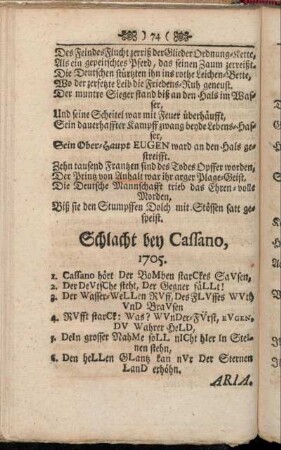 74
Des Feindes Flucht zerriß der Glieder Ordnung-Kette,
Als ein gepeitschtes Pferd, das seinen Zaum zerreißt.
Die Deutschen stürtzten ihn ins rothe Leichen-Bette,
Wo der zerfetzte Leib die Friedens-Ruh geneust.
Der muntre Sieger stand biß an den Hals im Waß-
ser,
Und seine Scheitel war mit Feuer überhäufft,
Sein dauerhaffter Kampff zwang beyde Lebens-Haß-
ser,
Sein Ober-Haupt EUGEN ward an den Hals ge-
streifft.
Zehn tausend Frantzen sind des Todes Opffer worden,
Der Printz von Anhalt war ihr arger Plage-Geist.
Die Deutsche Mannschafft trieb das Ehren-volle
Morden,
Biß sie den Stumpffen Dolch mit Stössen satt ge-
speist.
Schlacht bey Cassano,
1705.
1. Cassano hört Der BoMben starCkes SaVsen,
2. Der DeVtsChe steht, Der Gegner fäLLt!
3. Der Wasser-WeLLen RVff, Des FLVsses WVth
VnD BraVsen
4. RVfft starCk: Was? WVnDer-FVrst, EVGEN,
DV Wahrer HeLD,
5. DeIn grosser NahMe soLL nICht hIer In Stei-
nen stehn,
6. Den heLLen GLantz kan nVr Der Sternen
LanD erhöhn.
ARIA.